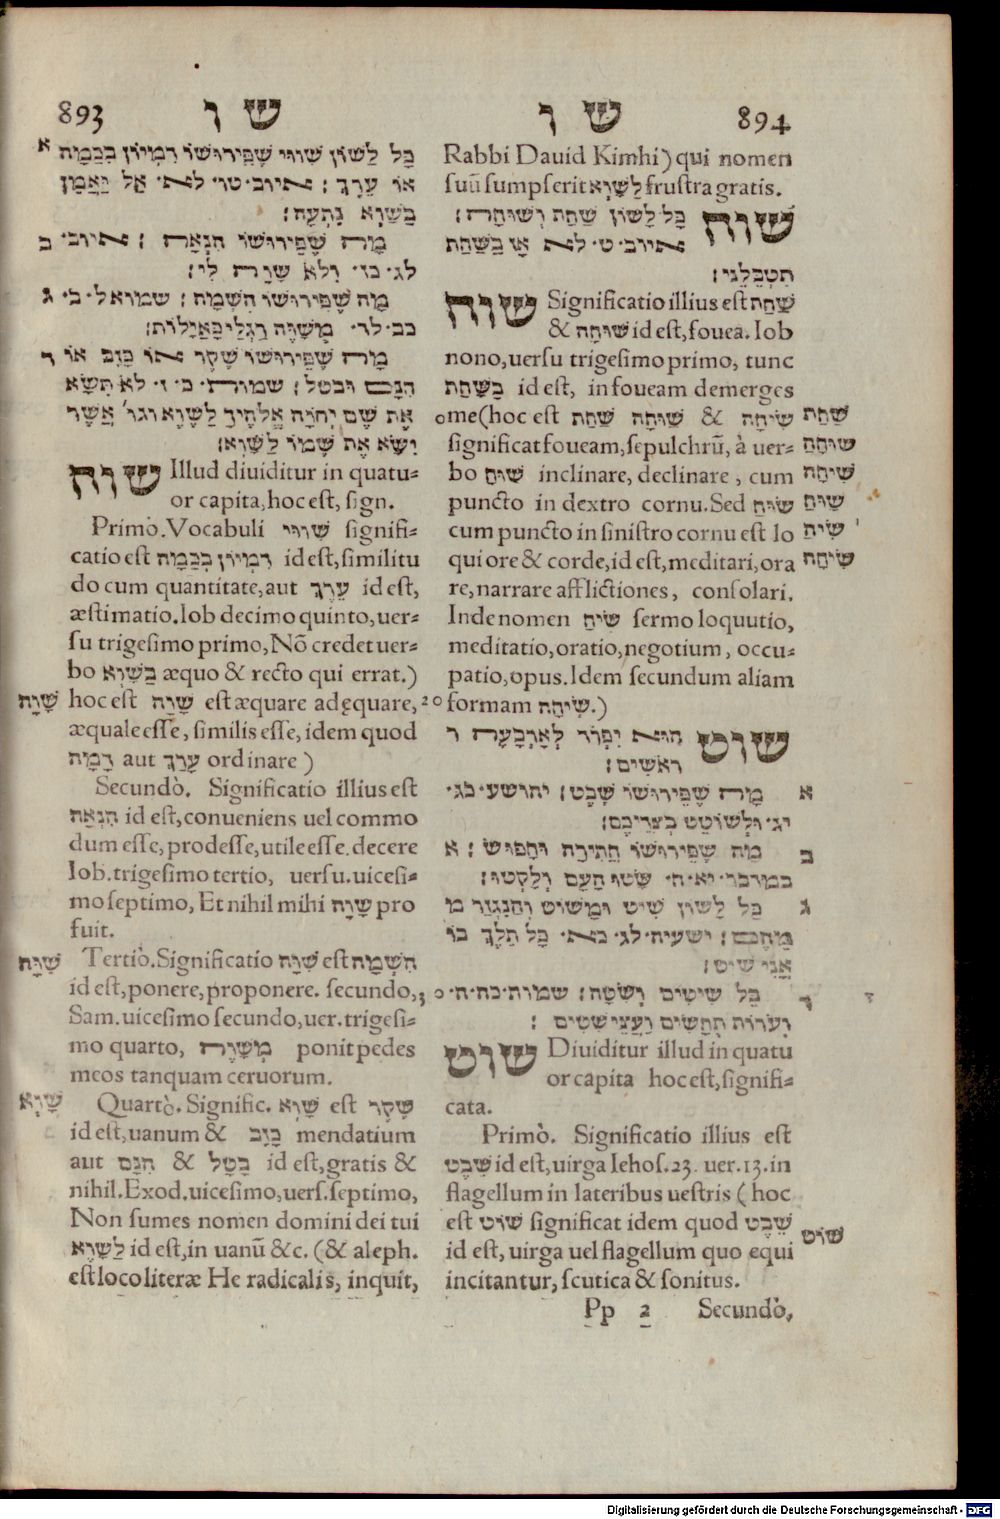 893 ש ו
כָּל לַשׁוֹן שׁוּוּי שֶׁפֵּירוּשׁוֹ דִּמְיוֹן בְּכַמָּה א
אוֹ עֵרֶך׃ איוב· טו· לא· אַל יַאֲמֵן
בַּשָּׁוְא נִתְעָה׃
מָה שֶׁפֵּירוּשׁוֹ הַנְאָה׃ איוב· ב
לג· כז· וְלֹא שָׁוָה לִי׃
מָה שֶׁפֵּירוּשׁוֹ הַשָּׂמָה׃ שמואל· ב· ג
כב· לד· מְשַׁוֶּה רַגְלַי כָּאַיָּלוֹת׃
מָה שֶׁפֵּירוּשׁוֹ שֶׁקֶר או כָּזָב אוֹ ד
חִנָּם ובטל׃ שמות· כ· ז· לֹא תִשָּׂא
אֶת שֵׁם יְהוָה אֱלֹהֶיךָ לַשָּׁוְא וגו׳ אֲשֶׁר
יִשָּׂא אֶת שְׁמוֹ לַשָּׁוְא׃
שוה Illud diuiditur in quatu-
or capita, hoc est, sign.
Primò. Vocabuli שׁוּוּי signifi-
catio est דִּמְיוֹן בְּכַמָּה id est, similitu
do cum quantitate, aut עֵרֶךְ id est,
æstimatio. Iob decimo quinto, uer-
su trigesimo primo, Nõ credet uer-
bo בַּשָּׁוְא æquo & recto qui errat.)
שָׁוָה hoc est שָׁוָה est æquare adęquare,
æquale esse, similis esse, idem quod
דָּמָה aut עָרַךְ ordinare)
Secundò. Significatio illius est
הַנְאָה id est, conueniens uel commo
dum esse, prodesse, utile esse. decere
Iob. trigesimo tertio, uersu. uicesi-
mo septimo, Et nihil mihi שָׁוָה pro
fuit.
שִׁוָּה Tertiò. Significatio שִׁוָּה est הַשָּׂמָה
id est, ponere, proponere. secundo,
Sam. uicesimo secundo, uer. trigesi-
mo quarto, מְשַׁוֶּה ponit pedes
meos tanquam ceruorum.
שָׁוְא Quartò. Signific. שָׁוְא est שֶׁקֶר
id est, uanum & כָּזָב mendatium
aut חִנָּם & בָּטֵל id est, gratis &
nihil. Exod. uicesimo, uers. septimo,
Non sumes nomen domini dei tui
לַשָּׁוְא id est, in uanũ &c. (& aleph.
est loco literæ He radicalis, inquit,
ש ו 894
Rabbi Dauid Kimhi) qui nomen
suũ sumpserit לַשָּׁוְא frustra gratis.
שוח כָּל לָשׁוֹן שַׁחַת וְשׁוּחָה׃
איוב· ט· לא· אָז בַּשַּׁחַת
תִּטְבְּלֵנִי׃
שוח Significatio illius est שַׁחַת
& שׁוּחָה id est, fouea. Iob
nono, uersu trigesimo primo, tunc
בַּשַּׁחַת id est, in foueam demerges
me (hoc est שִׁיחָה שׁוּחָה & שַׁחַת שַׁחַת
significat foueam, sepulchrũ, à uer- שׁוּחָה
bo שׁוּחַ inclinare, declinare, cum שִׁיחָה
puncto in dextro cornu. Sed שׂוּחַ שׂוּחַ
cum puncto in sinistro cornu est lo שִׂיחַ
qui ore & corde, id est, meditari, ora שִׂיחָה
re, narrare afflictiones, consolari.
Inde nomen שִׂיחַ sermo loquutio,
meditatio, oratio, negotium, occu-
patio, opus. Idem secundum aliam
20 formam שִׂיחָה.)
שוט הוּא יִפָּרֵד לְאַרְבָּעָה ד
רָאשִׁים׃
מָה שֶׁפֵּירוּשׁוֹ שֵׁבֶט׃ יהושע· כג· א
יג· וּלְשׁוֹטֵט בְּצִדֵּיכֶם׃
מָה שֶׁפֵּירוּשׁוֹ חֲתִירָה וְחִפּוּשׂ׃ ב
במדבר· יא· ח· שָׁטוּ הָעָם וְלָקְטוּ׃
כָּל לָשׁוֹן שַׁיִט וּמָשׁוֹט וְהַנִגְזַר מ ג
מֵהֶם׃ ישעיה· לג· כא· בַּל תֵּלֶךְ בּוֹ
אֳנִי שַׁיִט׃
כָּל שיטים וְשִׁטָּה׃ שמות· כה· ה· ד
וְעֹרוֹת תְּחָשִׁים וַעֲצֵי שִׁטִּים׃
שוט Diuiditur illud in quatu
or capita hoc est, signifi-
cata.
Primò. Significatio illius est
שֵׁבֶט id est, uirga Iehos. 23. uer. 13. in
flagellum in lateribus uestris (hoc
est שׁוֹט significat idem quod שֵׁבֶט שׁוֹט
id est, uirga uel flagellum quo equi
incitantur, scutica & sonitus.
Pp 2 Secundò,
Digitalisierung gefördert durch die Deutsche Forschungsgemeinschaft - DFG